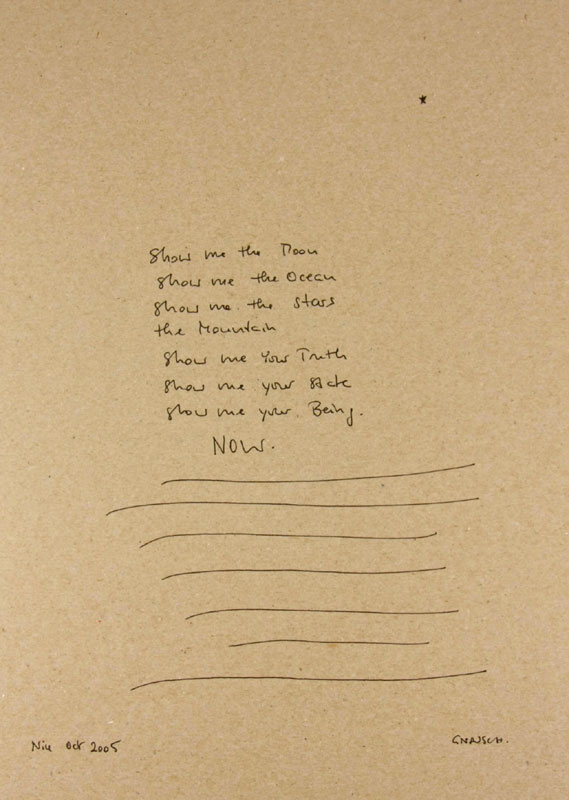 Show me the Moon
Show me the Ocean
Show me the Stars
the Mountain
Show me Your Truth
Show me your
Show me your Being.
NOW.
Oct 2005